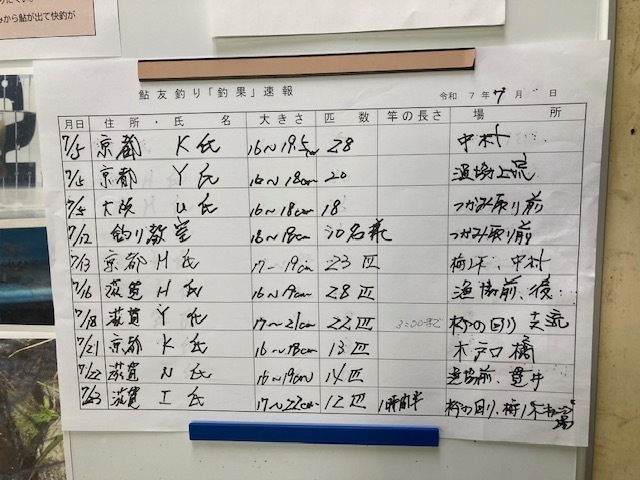 みから鮎が出て快釣が
鮎友釣り「釣果」速報 令和 7年 7月 日
月日 住所・氏名 大きさ 匹数 竿の長さ 場所
7/5 京都 K氏 16〜19.5cm 28 中村
7/5 京都 Y氏 16〜18cm 20 漁協上流
7/5 大阪 U氏 16〜18cm 18 つかみ取り前
7/12 釣り教室 16〜18cm つかみ取り前
7/13 京都 H氏 17〜19cm 23匹 中村
7/16 滋賀 H氏 16〜19cm 28匹 漁協前、後
7/18 滋賀 Y氏 17〜21cm 22匹 3:00まで の回り 支流
7/21 京都 K氏 16〜18cm 13匹 木戸口橋
7/22 滋賀 N氏 16〜19cm 14匹 漁協前、貫井
7/23 滋賀 I氏 17〜22cm 12匹 1時間半 の回り、